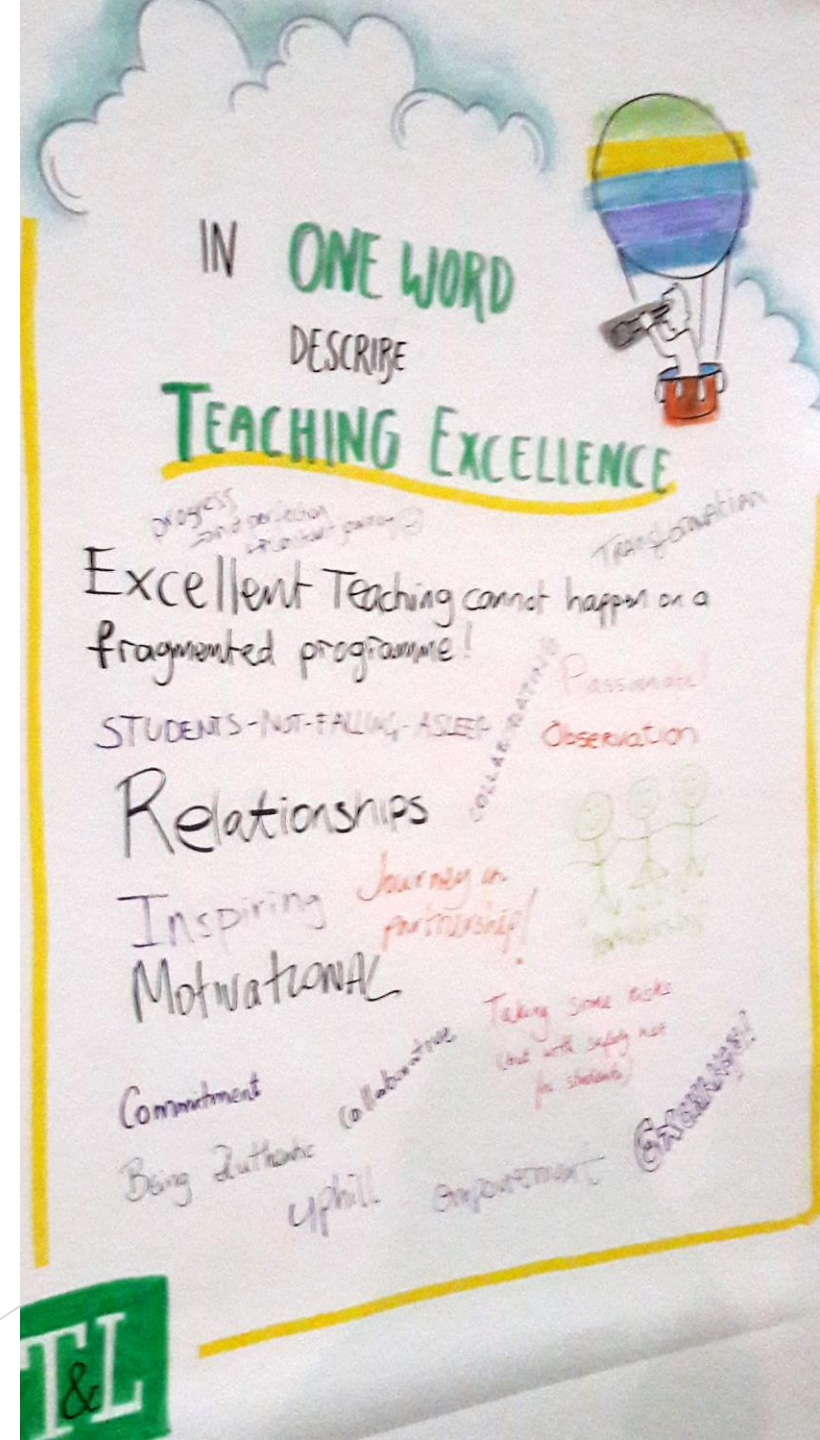 IN ONE WORD
DESCRIBE
TEACHING EXCELLENCE
progress
and perfecting
TRANSFORMATION
Excellent Teaching cannot happen on a
fragmented programme!
COLLABORATING
Passionate!
STUDENTS-NOT-FALLING-ASLEEP
Observation
Relationships
Inspiring
Journey in
partnership!
MOTIVATIONAL
Taking some risks
(but with safety net
for students)
Commitment
Collaborative
Being Authentic
uphill
empowerment
T&L